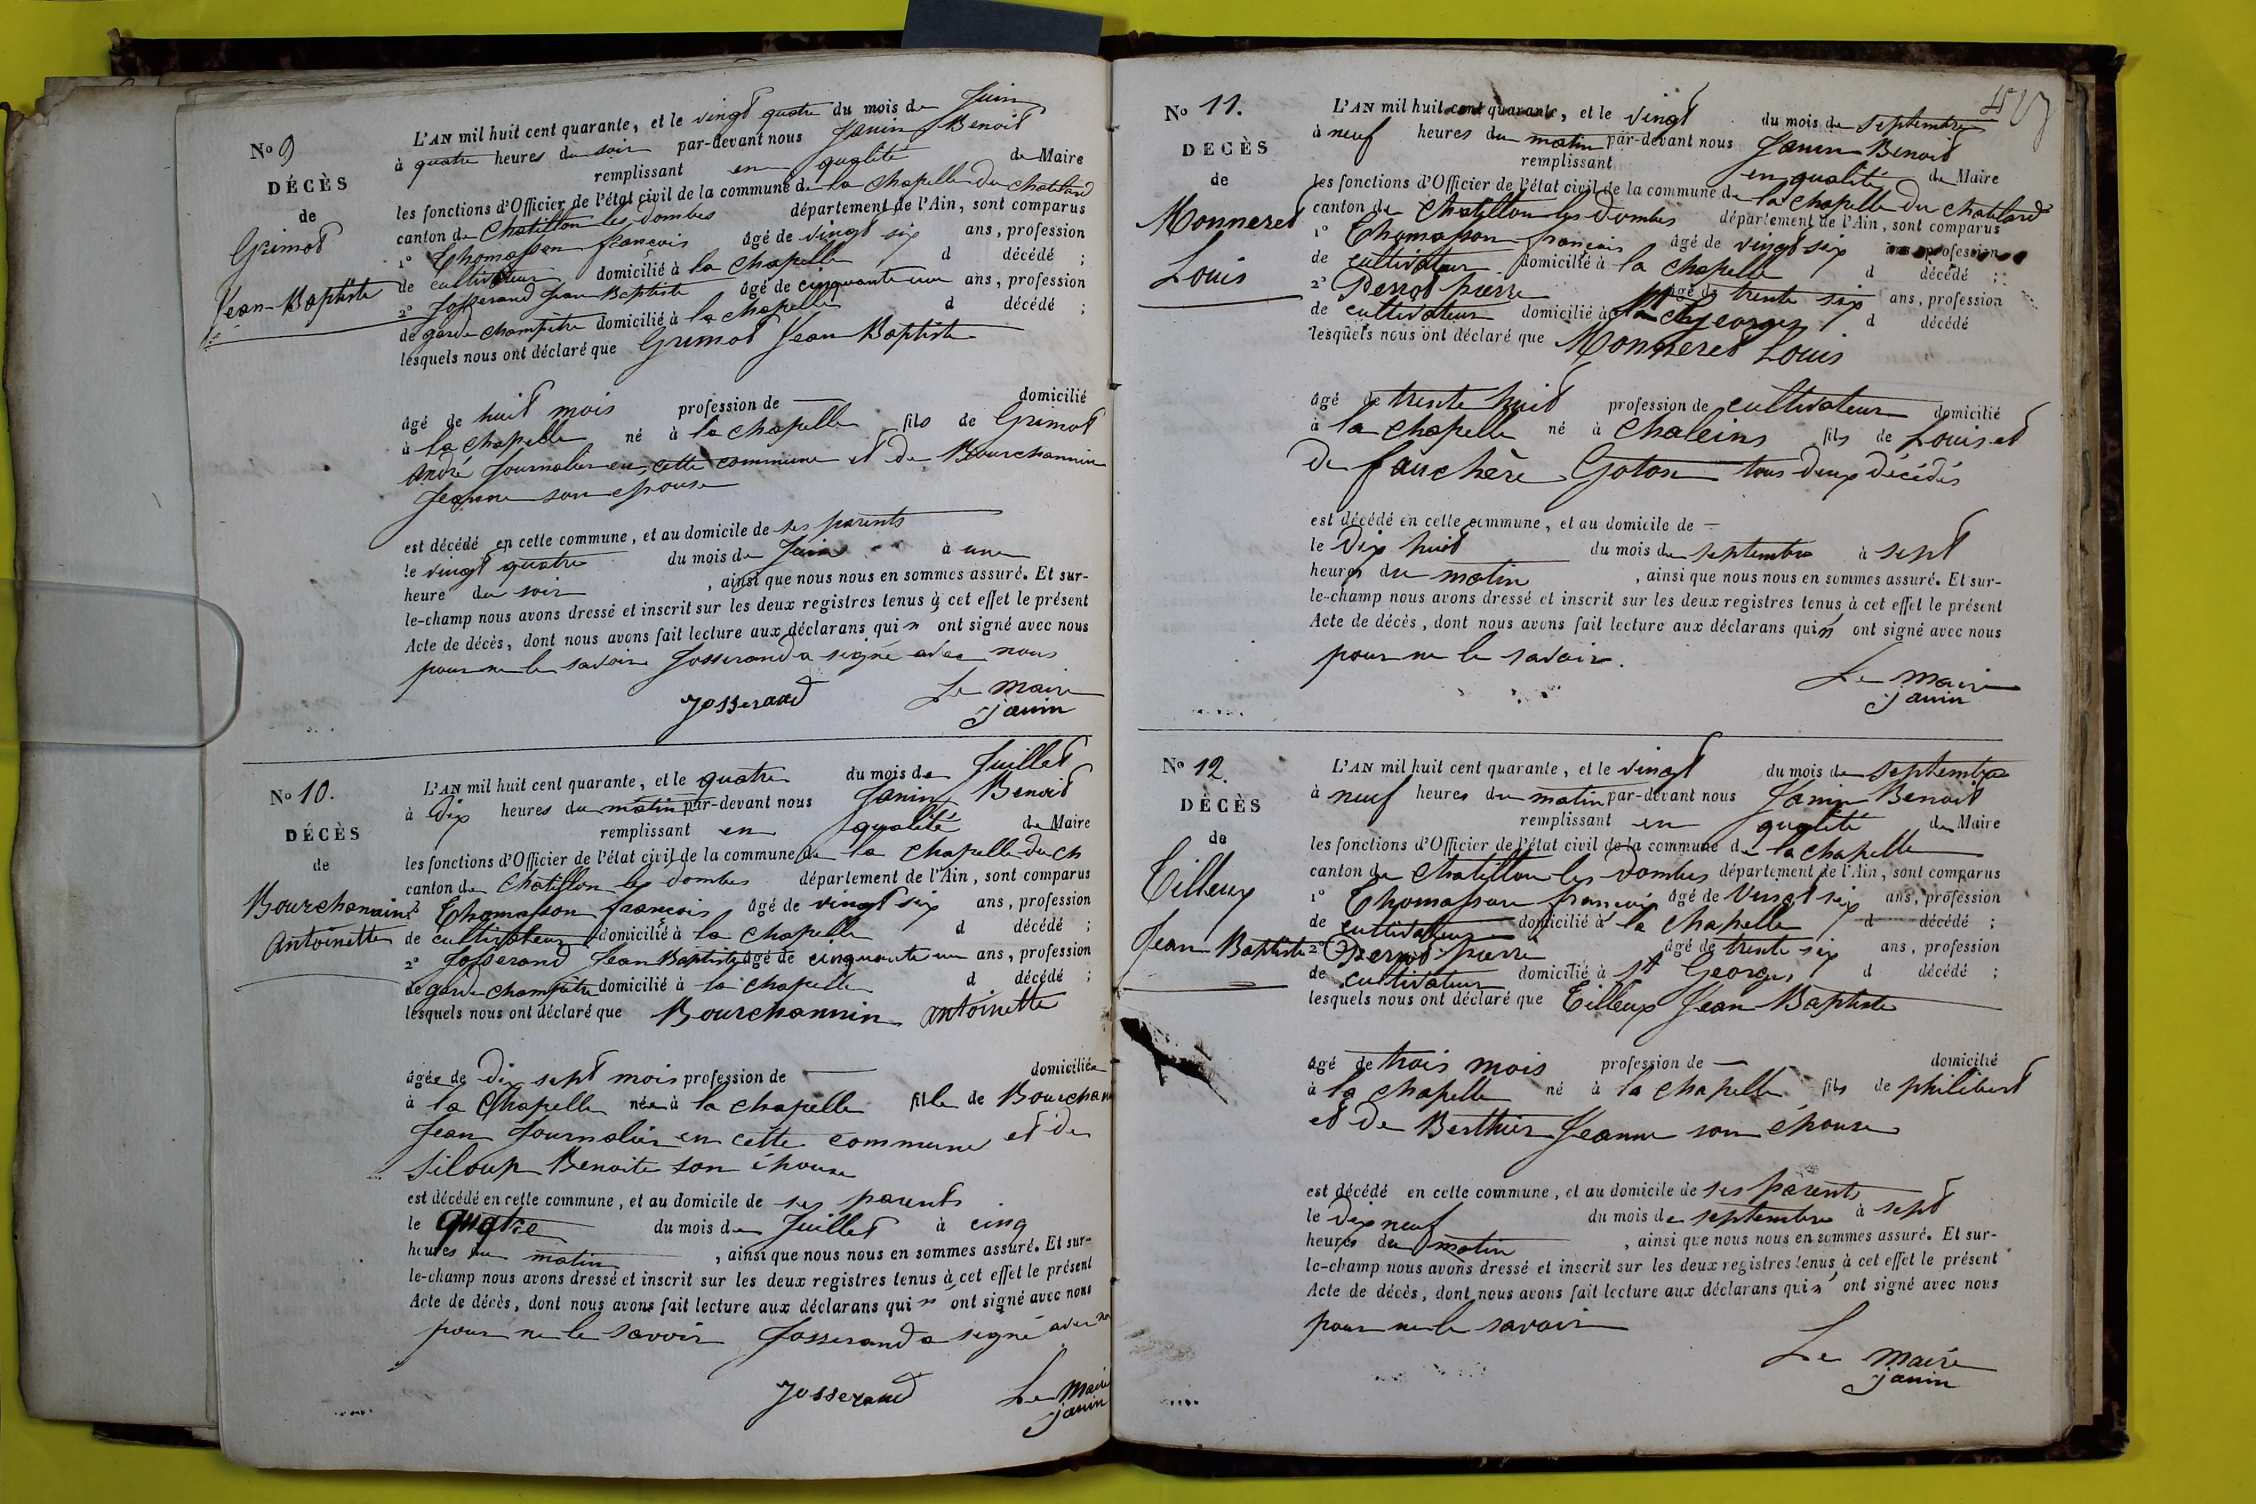 No 9
DÉCÈS
de
Grimot
Jean-Baptiste
L'AN mil huit cent quarante, et le vingt quatre du mois de Juin
à quatre heures du soir par-devant nous Janin Benoit
remplissant en qualité de Maire
les fonctions d'Officier de l'état civil de la commune de la Chapelle du Chatelard
canton de Chatillon les Dombes département de l'Ain, sont comparus
1° Thomasson françois âgé de vingt six ans, profession
de cultivateur domicilié à la Chapelle d décédé ;
2° Josserand Jean Baptiste âgé de cinquante un ans, profession
de garde champêtre domicilié à la chapelle d décédé ;
lesquels nous ont déclaré que Grimot Jean Baptiste
âgé de huit mois profession de — domicilié
à la chapelle né à la chapelle fils de Grimot
André Journalier en cette commune et de Bourchannin
Jeanne son épouse
est décédé en cette commune, et au domicile de ses parents
le vingt quatre du mois de Juin à une
heure du soir , ainsi que nous nous en sommes assuré. Et sur-
le-champ nous avons dressé et inscrit sur les deux registres tenus à cet effet le présent
Acte de décès, dont nous avons fait lecture aux déclarans qui n' ont signé avec nous
pour ne le savoir Josserand a signé avec nous
Josserand
Le maire
Janin
No 10.
DÉCÈS
de
Bourchanain
Antoinette
L'AN mil huit cent quarante, et le quatre du mois de Juillet
à Dix heures du matin par-devant nous Janin Benoit
remplissant en qualité de Maire
les fonctions d'Officier de l'état civil de la commune de la Chapelle du Ch
canton de Chatillon les Dombes département de l'Ain, sont comparus
1° Thomasson françois âgé de vingt six ans, profession
de cultivateur domicilié à la Chapelle d décédé ;
2° Josserand Jean Baptiste âgé de cinquante un ans, profession
de garde champêtre domicilié à la chapelle d décédé ;
lesquels nous ont déclaré que Bourchannin antoinette
âgée de Dix sept mois profession de — domiciliée
à la Chapelle née à la chapelle fille de Bourchan
Jean Journalier en cette commune et de
Siloup Benoite son épouse
est décédé en cette commune, et au domicile de ses parents
le quatre du mois de Juillet à cinq
heures du matin , ainsi que nous nous en sommes assuré. Et sur-
le-champ nous avons dressé et inscrit sur les deux registres tenus à cet effet le présent
Acte de décès, dont nous avons fait lecture aux déclarans qui n' ont signé avec nous
pour ne le savoir Josserand a signé avec
Josserand
Le Maire
Janin
No 11.
DECÈS
de
Monneret
Louis
L'AN mil huit cent quarante, et le vingt du mois de septembre
à neuf heures du matin par-devant nous Janin Benoit
remplissant en qualité de Maire
les fonctions d'Officier de l'état civil de la commune de la Chapelle du Chatelard
canton de Chatillon les Dombes département de l'Ain, sont comparus
1° Thomasson françois âgé de vingt six ans, profession
de cultivateur domicilié à la Chapelle d décédé ;
2° Perrot pierre âgé de trente six ans, profession
de cultivateur domicilié à St Georges d décédé
lesquels nous ont déclaré que Monneret Louis
âgé de trente huit profession de cultivateur domicilié
à la chapelle né à chaleins fils de Louis et
De fauchère Goton tous deux décédés
est décédé en cette commune, et au domicile de —
le Dix huit du mois de septembre à sept
heures du matin , ainsi que nous nous en sommes assuré. Et sur-
le-champ nous avons dressé et inscrit sur les deux registres tenus à cet effet le présent
Acte de décès, dont nous avons fait lecture aux déclarans qui n' ont signé avec nous
pour ne le savoir.
Le maire
Janin
No 12.
DÈCÈS
de
Tilleux
Jean Baptiste
L'AN mil huit cent quarante, et le vingt du mois de septembre
à neuf heures du matin par-devant nous Janin Benoit
remplissant en qualité de Maire
les fonctions d'Officier de l'état civil de la commune de la chapelle
canton de Chatillon les Dombes département de l'Ain, sont comparus
1° Thomasson françois âgé de vingt six ans, profession
de cultivateur domicilié à la chapelle d décédé ;
2° Perrot pierre âgé de trente six ans, profession
de cultivateur domicilié à St Georges d décédé ;
lesquels nous ont déclaré que Tilleux Jean Baptiste
âgé de trois mois profession de — domicilié
à la chapelle né à la chapelle fils de philibert
et de Berthier Jeanne son épouse
est décédé en cette commune, et au domicile de ses parents
le Dix neuf du mois de septembre à sept
heures du matin , ainsi que nous nous en sommes assuré. Et sur-
le-champ nous avons dressé et inscrit sur les deux registres tenus à cet effet le présent
Acte de décès, dont nous avons fait lecture aux déclarans qui n' ont signé avec nous
pour ne le savoir
Le maire
Janin